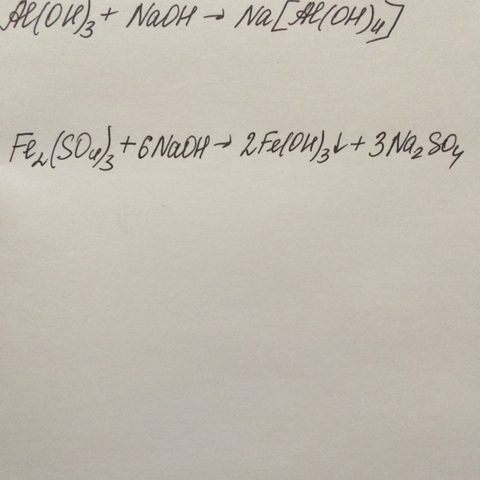 Al(OH)₃ + NaOH → Na[Al(OH)₄]
Fe₂(SO₄)₃ + 6NaOH → 2Fe(OH)₃↓ + 3Na₂SO₄